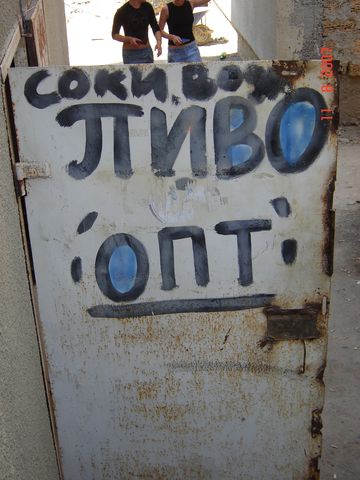 СОКИ, ВОДЫ
ПИВО
ОПТ
11 8 2007